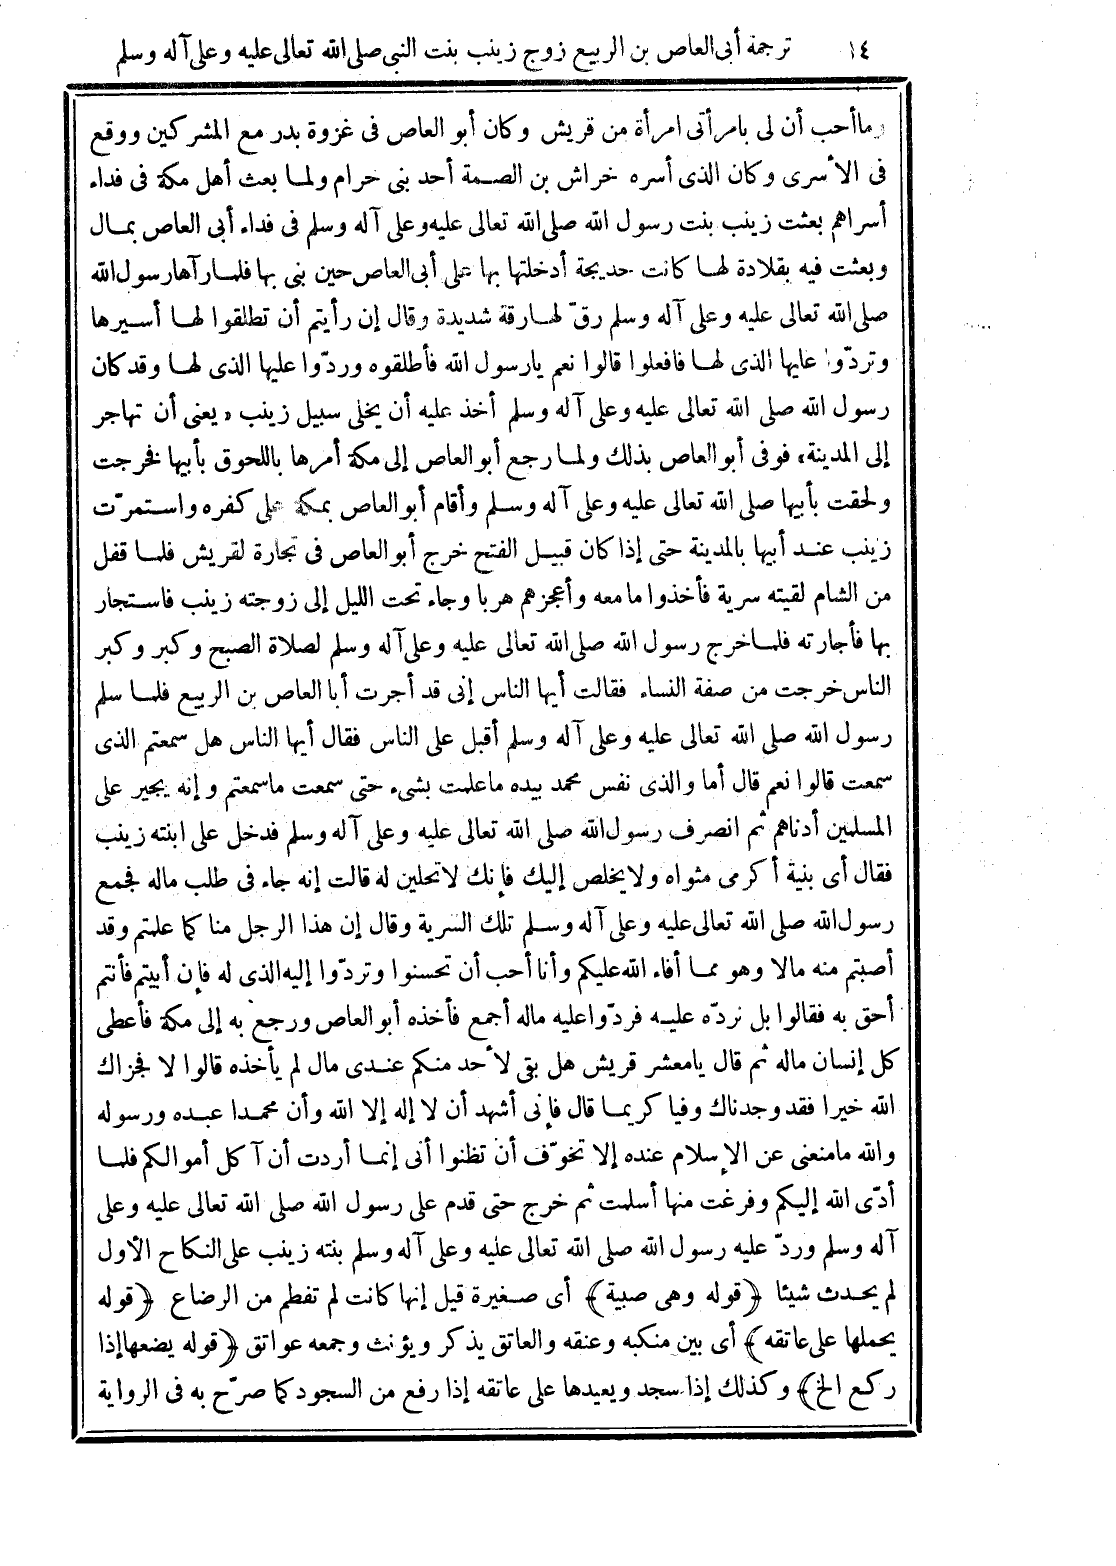 ١٤ ترجمة أبى العاص بن الربيع زوج زينب بنت النبى صلى الله تعالى عليه وعلى آله وسلم
وما أحب أن لى بامرأتى امرأة من قريش وكان أبو العاص فى غزوة بدر مع المشركين ووقع
فى الأسرى وكان الذى أسره خراش بن الصمة أحد بنى حرام ولما بعث أهل مكة فى فداء
أسراهم بعثت زينب بنت رسول الله صلى الله تعالى عليه وعلى آله وسلم فى فداء أبى العاص بمال
وبعثت فيه بقلادة لها كانت خديجة أدخلتها بها على أبى العاص حين بنى بها فلما رآها رسول الله
صلى الله تعالى عليه وعلى آله وسلم رقّ لها رقة شديدة وقال إن رأيتم أن تطلقوا لها أسيرها
وتردّوا عليها الذى لها فافعلوا قالوا نعم يارسول الله فأطلقوه وردّوا عليها الذى لها وقد كان
رسول الله صلى الله تعالى عليه وعلى آله وسلم أخذ عليه أن يخلى سبيل زينب «يعنى أن تهاجر
إلى المدينة» فوفى أبو العاص بذلك ولما رجع أبو العاص إلى مكة أمرها باللحوق بأبيها فخرجت
ولحقت بأبيها صلى الله تعالى عليه وعلى آله وسلم وأقام أبو العاص بمكة على كفره واستمرّت
زينب عند أبيها بالمدينة حتى إذا كان قبيل الفتح خرج أبو العاص فى تجارة لقريش فلما قفل
من الشام لقيته سرية فأخذوا ما معه وأعجزهم هربا وجاء تحت الليل إلى زوجته زينب فاستجار
بها فأجارته فلما خرج رسول الله صلى الله تعالى عليه وعلى آله وسلم لصلاة الصبح وكبر وكبر
الناس خرجت من صفة النساء فقالت أيها الناس إنى قد أجرت أبا العاص بن الربيع فلما سلم
رسول الله صلى الله تعالى عليه وعلى آله وسلم أقبل على الناس فقال أيها الناس هل سمعتم الذى
سمعت قالوا نعم قال أما والذى نفس محمد بيده ماعلمت بشىء حتى سمعت ماسمعتم وإنه يجير على
المسلمين أدناهم ثم انصرف رسول الله صلى الله تعالى عليه وعلى آله وسلم فدخل على ابنته زينب
فقال أى بنية أكرمى مثواه ولا يخلص إليك فإنك لا تحلين له قالت إنه جاء فى طلب ماله فجمع
رسول الله صلى الله تعالى عليه وعلى آله وسلم تلك السرية وقال إن هذا الرجل منا كما علمتم وقد
أصبتم منه مالا وهو مما أفاء الله عليكم وأنا أحب أن تحسنوا وتردّوا إليه الذى له فإن أبيتم فأنتم
أحق به فقالوا بل نردّه عليه فردّوا عليه ماله أجمع فأخذه أبو العاص ورجع به إلى مكة فأعطى
كل إنسان ماله ثم قال يا معشر قريش هل بقى لأحد منكم عندى مال لم يأخذه قالوا لا فجزاك
الله خيرا فقد وجدناك وفيا كريما قال فإنى أشهد أن لا إله إلا الله وأن محمدا عبده ورسوله
والله مامنعنى عن الإسلام عنده إلا تخوّف أن تظنوا أنى إنما أردت أن آكل أموالكم فلما
أدّى الله إليكم وفرغت منها أسلمت ثم خرج حتى قدم على رسول الله صلى الله تعالى عليه وعلى
آله وسلم وردّ عليه رسول الله صلى الله تعالى عليه وعلى آله وسلم بنته زينب على النكاح الأول
لم يحدث شيئا ﴿قوله وهى صبية﴾ أى صغيرة قيل إنها كانت لم تفطم من الرضاع ﴿قوله
يحملها على عاتقه﴾ أى بين منكبه وعنقه والعاتق يذكر ويؤنث وجمعه عواتق ﴿قوله يضعها إذا
ركع الخ﴾ وكذلك إذا سجد ويعيدها على عاتقه إذا رفع من السجود كما صرّح به فى الرواية